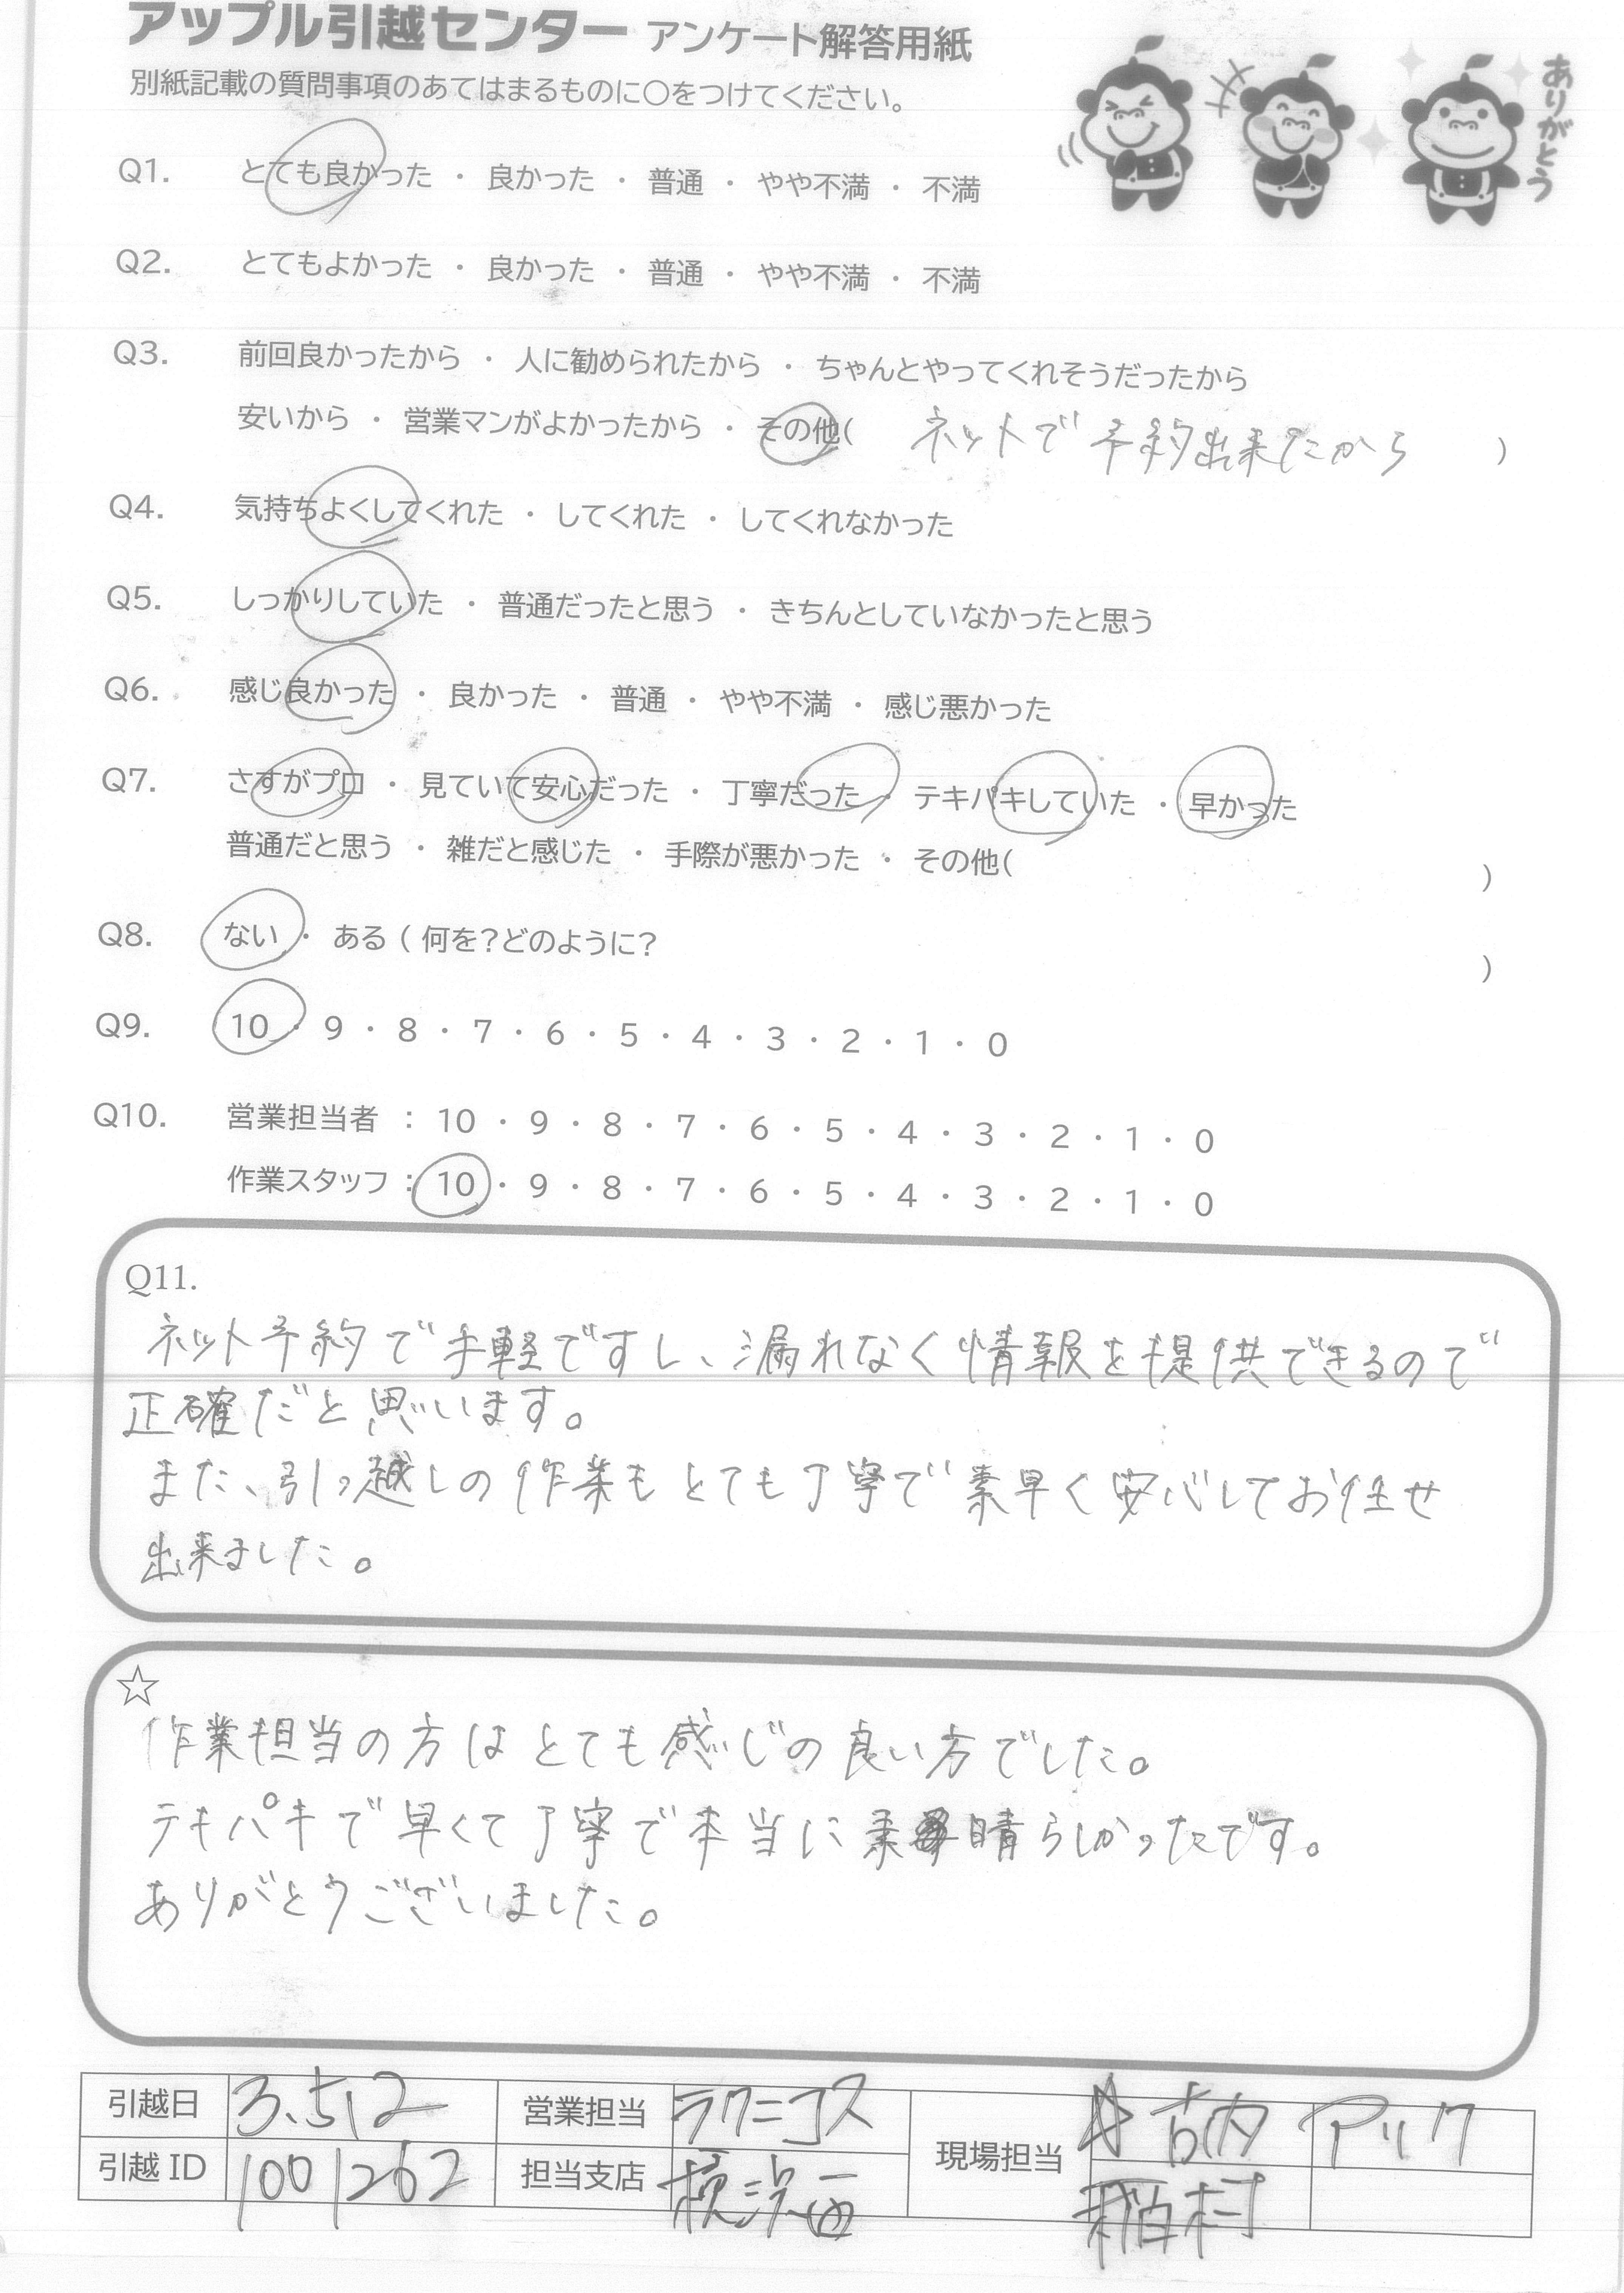 アップル引越センター アンケート解答用紙
別紙記載の質問事項のあてはまるものに○をつけてください。
ありがとう
Q1. とても良かった ・ 良かった ・ 普通 ・ やや不満 ・ 不満
Q2. とてもよかった ・ 良かった ・ 普通 ・ やや不満 ・ 不満
Q3. 前回良かったから ・ 人に勧められたから ・ ちゃんとやってくれそうだったから
安いから ・ 営業マンがよかったから ・ その他( ネットで予約出来たから )
Q4. 気持ちよくしてくれた ・ してくれた ・ してくれなかった
Q5. しっかりしていた ・ 普通だったと思う ・ きちんとしていなかったと思う
Q6. 感じ良かった ・ 良かった ・ 普通 ・ やや不満 ・ 感じ悪かった
Q7. さすがプロ ・ 見ていて安心だった ・ 丁寧だった ・ テキパキしていた ・ 早かった
普通だと思う ・ 雑だと感じた ・ 手際が悪かった ・ その他( )
Q8. ない ・ ある ( 何を?どのように? )
Q9. 10 ・ 9 ・ 8 ・ 7 ・ 6 ・ 5 ・ 4 ・ 3 ・ 2 ・ 1 ・ 0
Q10. 営業担当者 : 10 ・ 9 ・ 8 ・ 7 ・ 6 ・ 5 ・ 4 ・ 3 ・ 2 ・ 1 ・ 0
作業スタッフ : 10 ・ 9 ・ 8 ・ 7 ・ 6 ・ 5 ・ 4 ・ 3 ・ 2 ・ 1 ・ 0
Q11.
ネット予約で手軽ですし、漏れなく情報を提供できるので
正確だと思います。
また、引っ越しの作業もとても丁寧で素早く安心してお任せ
出来ました。
☆
作業担当の方はとても感じの良い方でした。
テキパキで早くて丁寧で本当に素晴らしかったです。
ありがとうございました。
引越日 3.5.12 営業担当 ラクニコス 現場担当 ☆ 古内 アリク
引越 ID 1001262 担当支店 横浜西 稲村